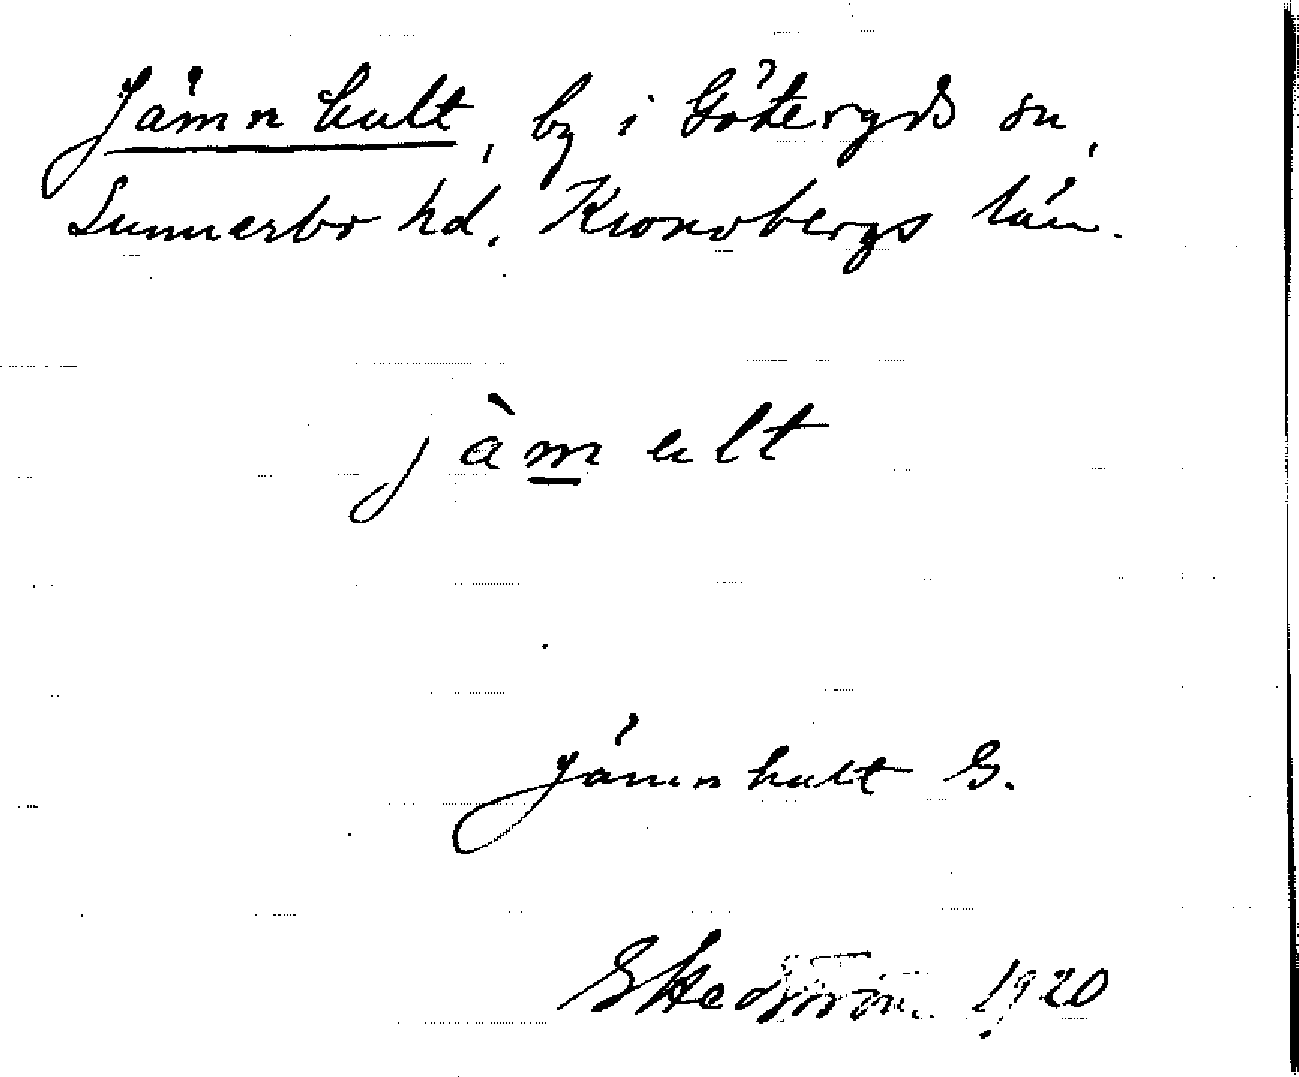 Jämnhult, by i Göteryds sn,
Sunnerbo hd. Kronobergs län.
jàmult
Jämnhult G.
G Hedström 1920